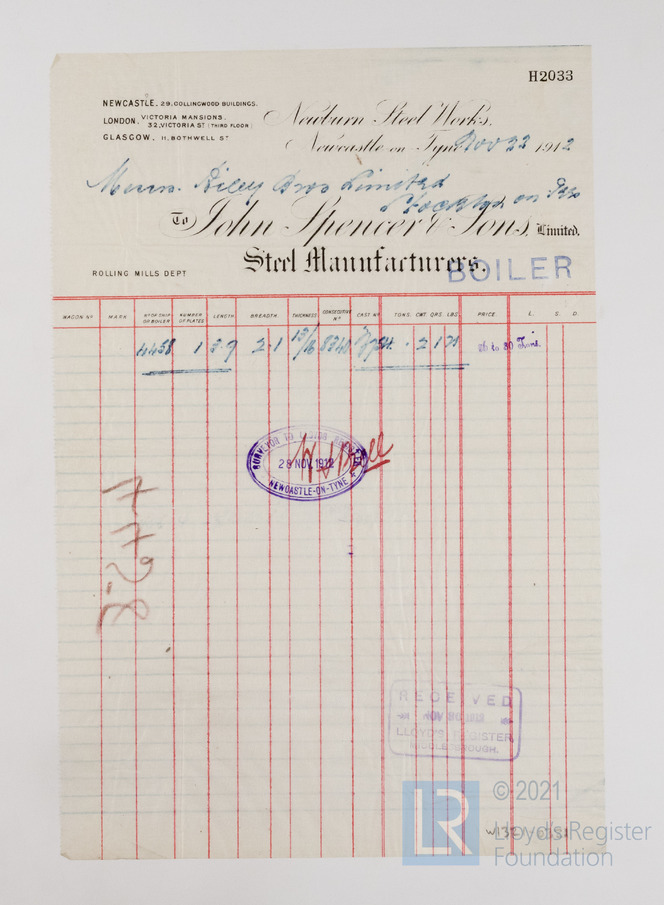 H2033
NEWCASTLE. 29, COLLINGWOOD BUILDINGS.
LONDON. VICTORIA MANSIONS.
32, VICTORIA ST (THIRD FLOOR)
GLASGOW, 11, BOTHWELL ST
Newburn Steel Works,
Newcastle on Tyne Nov 22 1912
Messrs. Riley Bros Limited
Stockton on Tees
To John Spencer & Sons, Limited.
Steel Manufacturers.
BOILER
ROLLING MILLS DEPT
WAGON No MARK No OF SHIP OR BOILER NUMBER OF PLATES LENGTH BREADTH THICKNESS CONSECUTIVE No CAST No TONS. CWT. QRS. LBS. PRICE. £. S. D.
4458 1 3.9 2.1 13/16 2 1 21 26 to 30 Tons.
SURVEYOR TO LLOYD'S REGISTER
28 NOV. 1912
NEWCASTLE-ON-TYNE
RECEIVED
NOV 30 1912
LLOYD'S REGISTER,
MIDDLESBROUGH.
LR © 2021
Lloyd's Register
Foundation